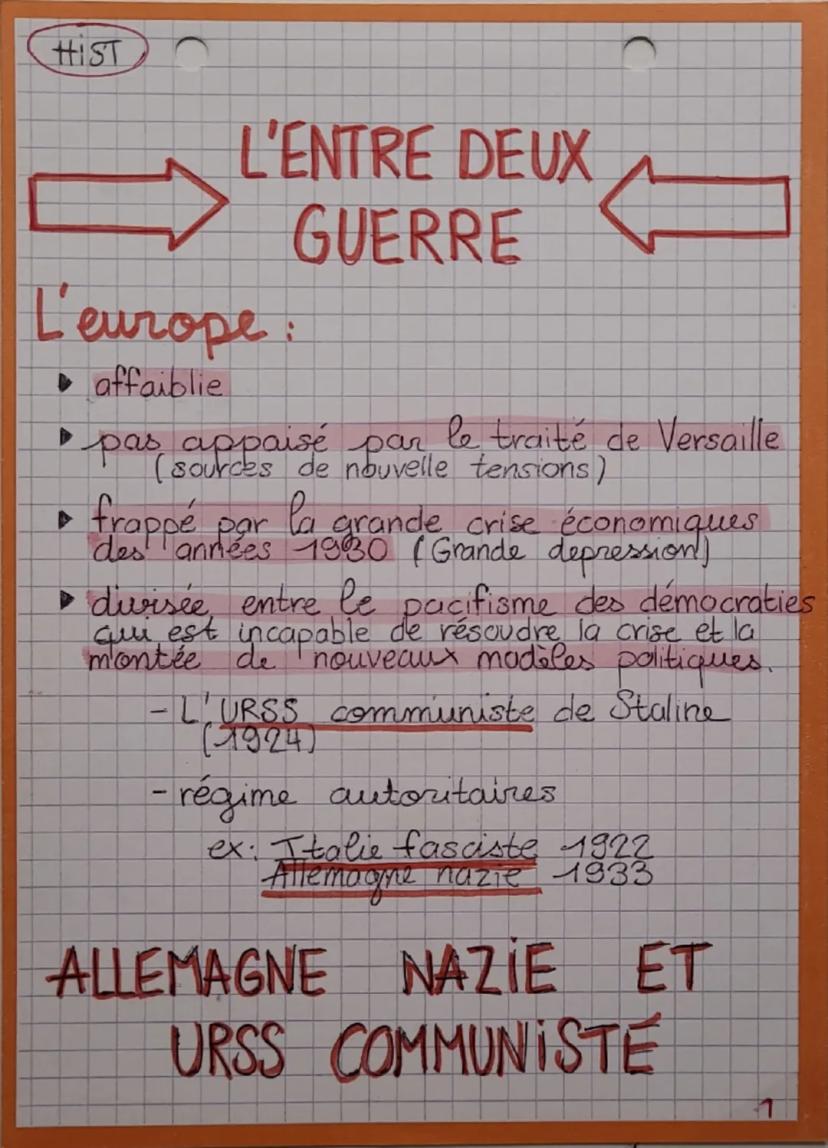 HiST
L'ENTRE DEUX
GUERRE
L'europe :
▶ affaiblie
▶ pas appaisé par le traité de Versaille
(sources de nouvelle tensions)
▶ frappé par la grande crise économiques
des années 1930 (Grande depression)
▶ divisée entre le pacifisme des démocraties
qui est incapable de résoudre la crise et la
montée de nouveaux modèles politiques.
- L'URSS communiste de Staline
(1924)
- régime autoritaires
ex: Italie fasciste 1922
Allemagne nazie 1933
ALLEMAGNE NAZiE ET
URSS COMMUNiSTE
1